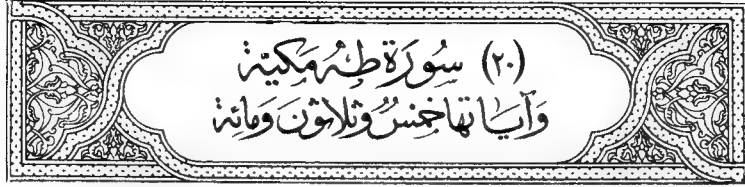 (٢٠) سُورَة طٰهٰ مَكيَّة
وَآيَاتها خمسٌ وَثلاثون وَمائة